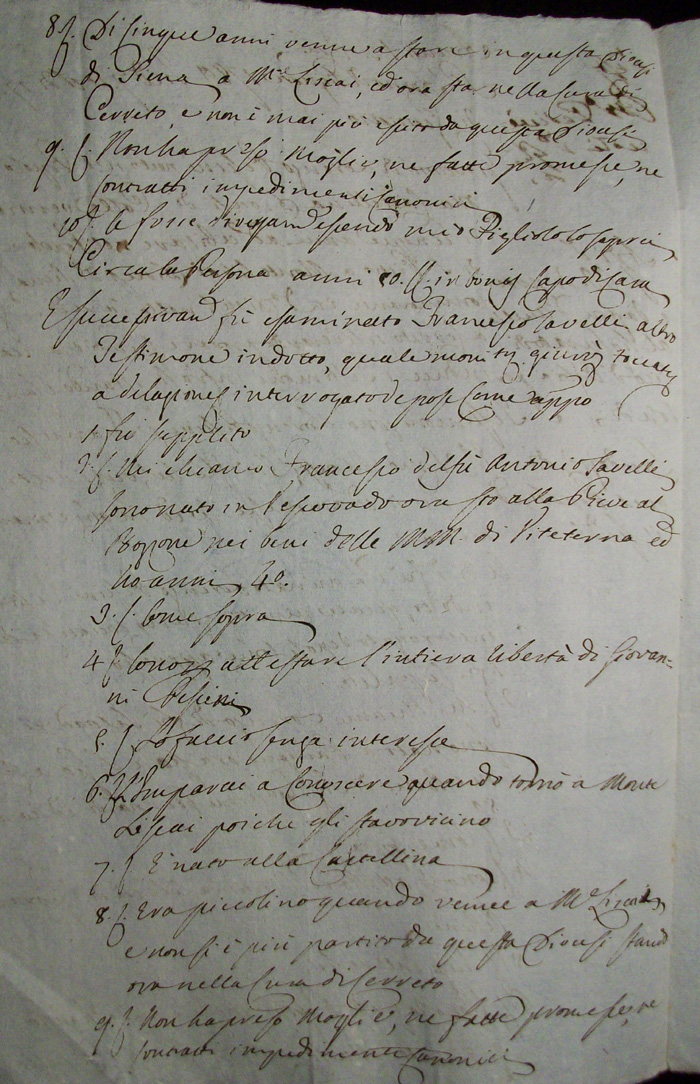 8. R. Di Cinque anni venne a stare in questa Diocesi
di Siena a M.te Liscai, ed ora sta nella Cura di
Cerreto e non è mai più escito da questa Diocesi
9. R. Non ha preso Moglie, ne fatte promesse, ne
contratti impedimenti Canonici
10. R. essendo mio Figliolo lo saprei
Circa la Persona anni 50. in bonis Capo di Casa
E successivam.e fù esaminato Francesco Savelli altro
Testimone indotto, quale monitus, giurò toccatis
a delazione interrogato depose Come appo
1. fù supplito
2. R. Mi chiamo Francesco del fù Antonio Savelli
sono nato in Vescovado ora sto alla Pieve al
Bozzone nei beni delle MM. di Viteterna ed
ho anni 40.
3. R. Come sopra
4. R. ad attestare l'intiera libertà di Giovan=
ni
5. R. Lo faccio senza interesse
6. R. L'Imparai a Conoscere quando tornò a Monte
Lescai poiche gli stavo vicino
7. R. È nato alla Castellina
8. R. Era piccolino quando venne a M.e Liscai,
e non si è più partito da questa Diocesi stand
ora nella Cura di Cerreto
9. R. Non ha preso Moglie, ne fatte promesse, ne
contratti impedimenti Canonici